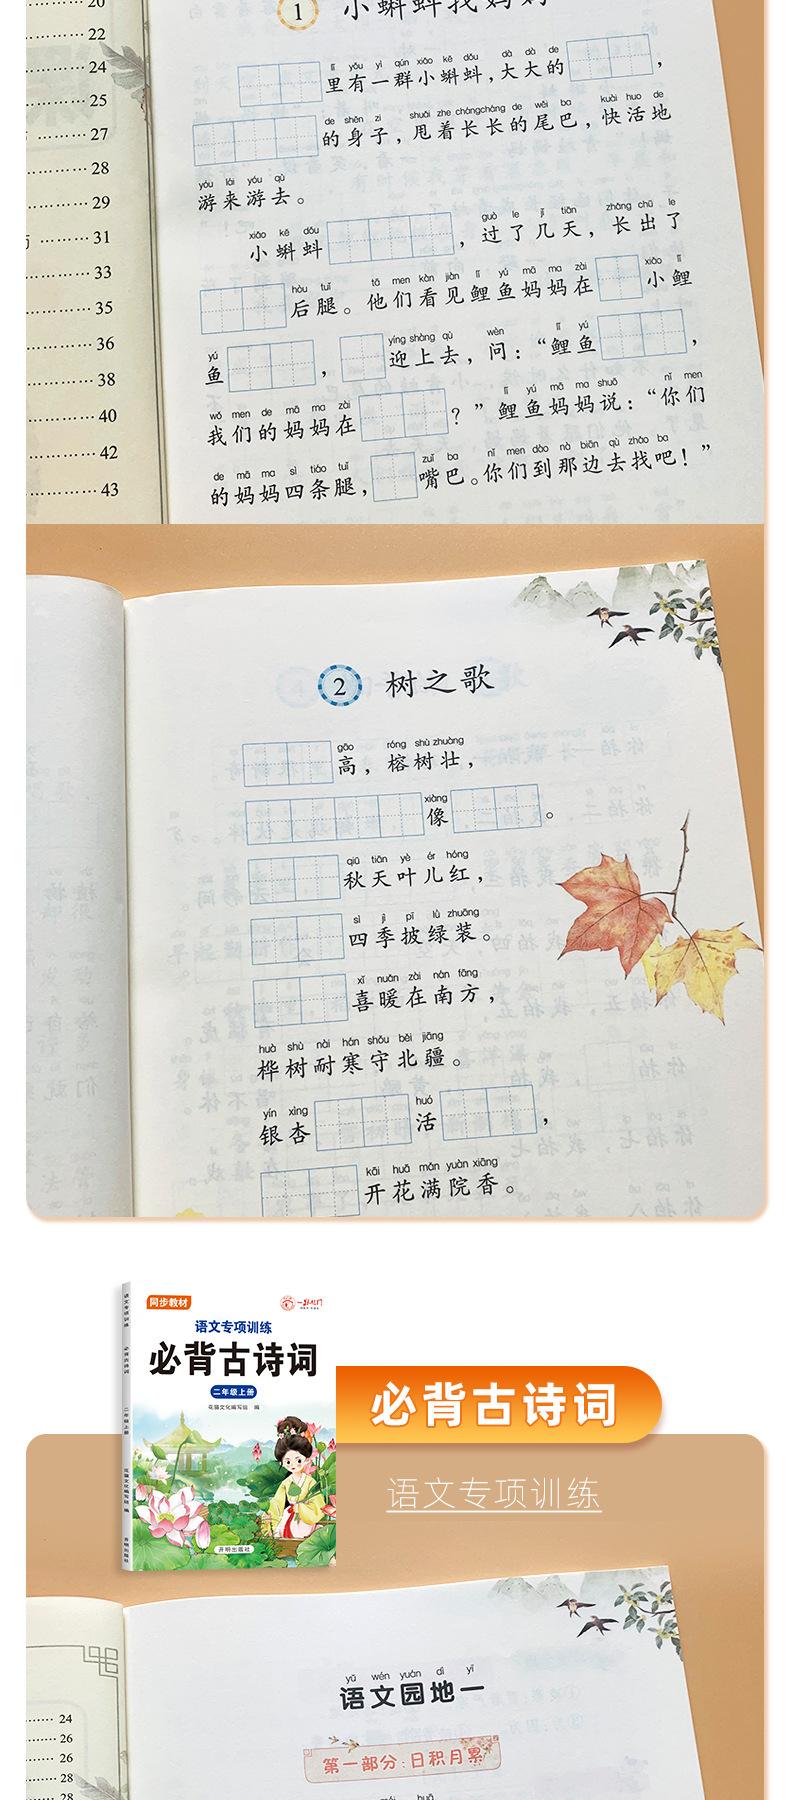 20
22
24
25
27
28
29
31
33
35
36
38
40
42
43
1 小蝌蚪找妈妈
lǐ yǒu yì qún xiǎo kē dǒu dà dà de
里有一群小蝌蚪,大大的 ,
de shēn zi shuǎi zhe chángcháng de wěi ba kuài huo de
的身子,甩着长长的尾巴,快活地
yóu lái yóu qù
游来游去。
xiǎo kē dǒu guò le jǐ tiān zhǎng chū le
小蝌蚪 ,过了几天,长出了
hòu tuǐ tā men kàn jiàn lǐ yú mā ma zài xiǎo lǐ
后腿。他们看见鲤鱼妈妈在 小鲤
yú yíng shàng qù wèn lǐ yú
鱼 , 迎上去,问:“鲤鱼 ,
wǒ men de mā ma zài lǐ yú mā ma shuō nǐ men
我们的妈妈在 ?”鲤鱼妈妈说:“你们
de mā ma sì tiáo tuǐ zuǐ ba nǐ men dào nà biān qù zhǎo ba
的妈妈四条腿, 嘴巴。你们到那边去找吧!”
2 树之歌
gāo róng shù zhuàng
高,榕树壮,
xiàng
像 。
qiū tiān yè ér hóng
秋天叶儿红,
sì jì pī lǜ zhuāng
四季披绿装。
xǐ nuǎn zài nán fāng
喜暖在南方,
huà shù nài hán shǒu běi jiāng
桦树耐寒守北疆。
yín xìng huó
银杏 活 ,
kāi huā mǎn yuàn xiāng
开花满院香。
同步教材
语文专项训练
必背古诗词
二年级上册
花猫文化编写组 编
开明出版社
语文专项训练
必背古诗词
二年级上册
花猫文化编写组 编
开明出版社
必背古诗词
语文专项训练
24
26
26
28
28
yǔ wén yuán dì yī
语文园地一
第一部分:日积月累